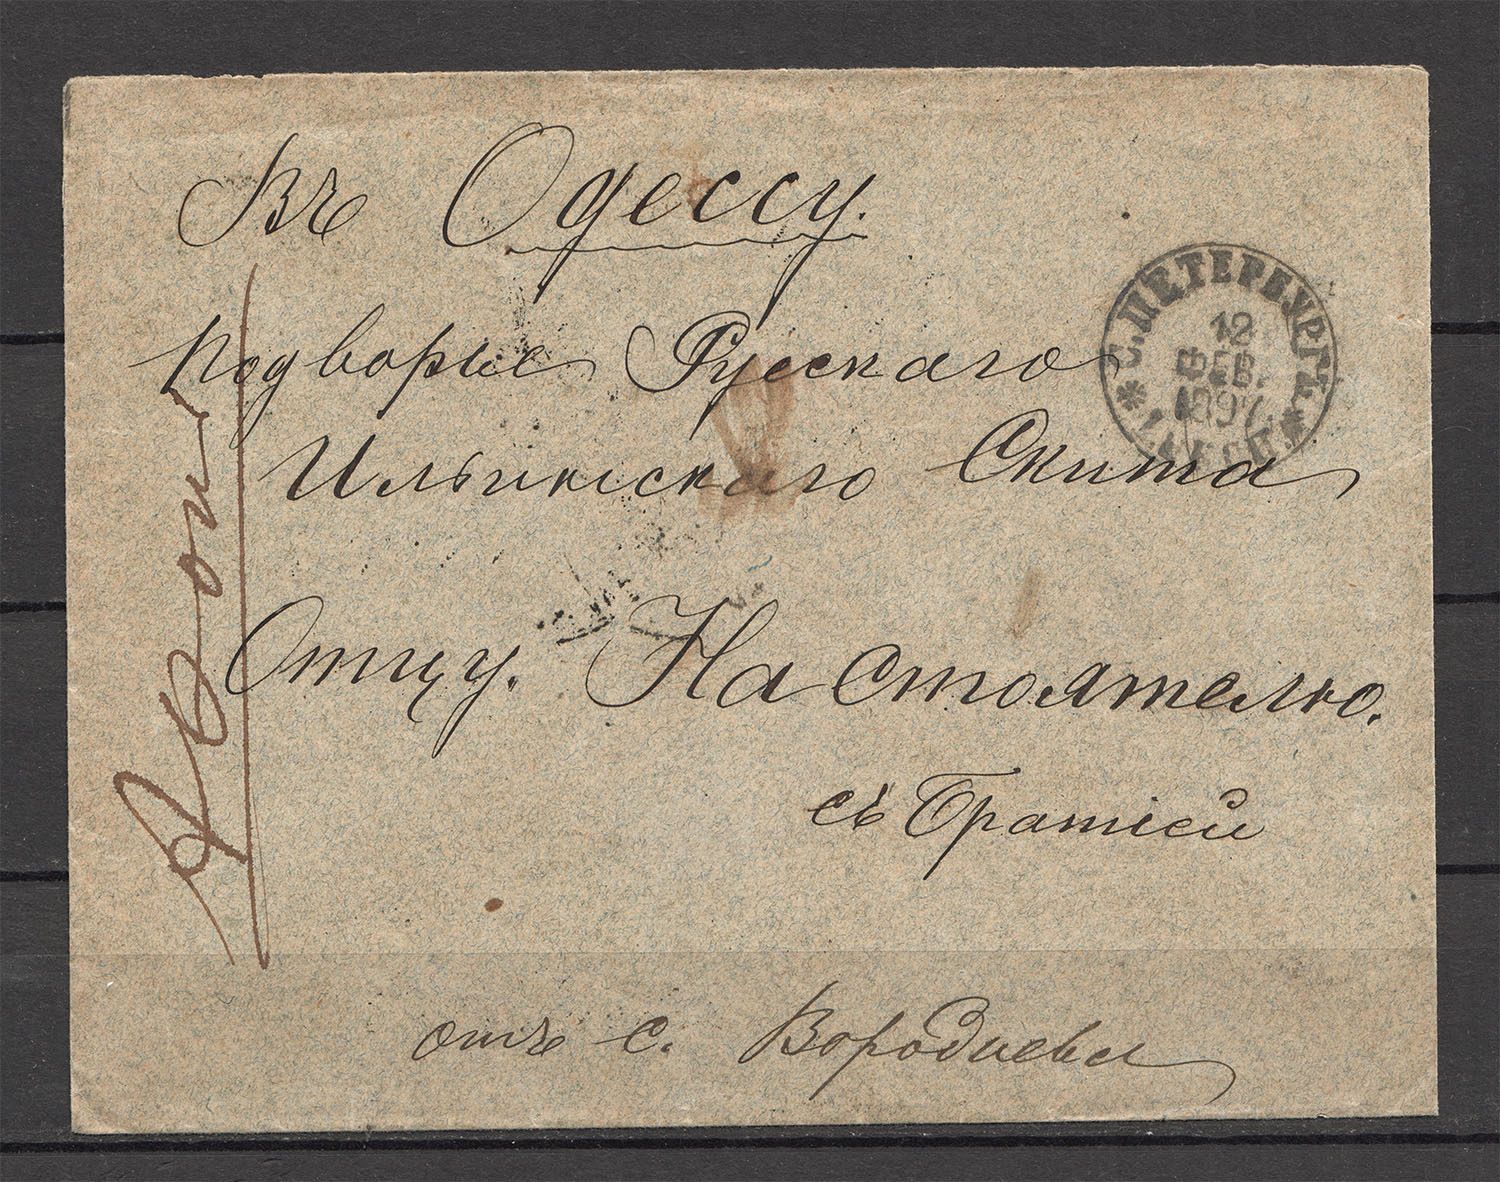 Въ Одессу.
подворье Русскаго
Ильинскаго Скита
Отцу. Настоятелю.
съ Братіей
отъ с. Вородиева
С. ПЕТЕРБУРГЪ
12
ФЕВ.
1897